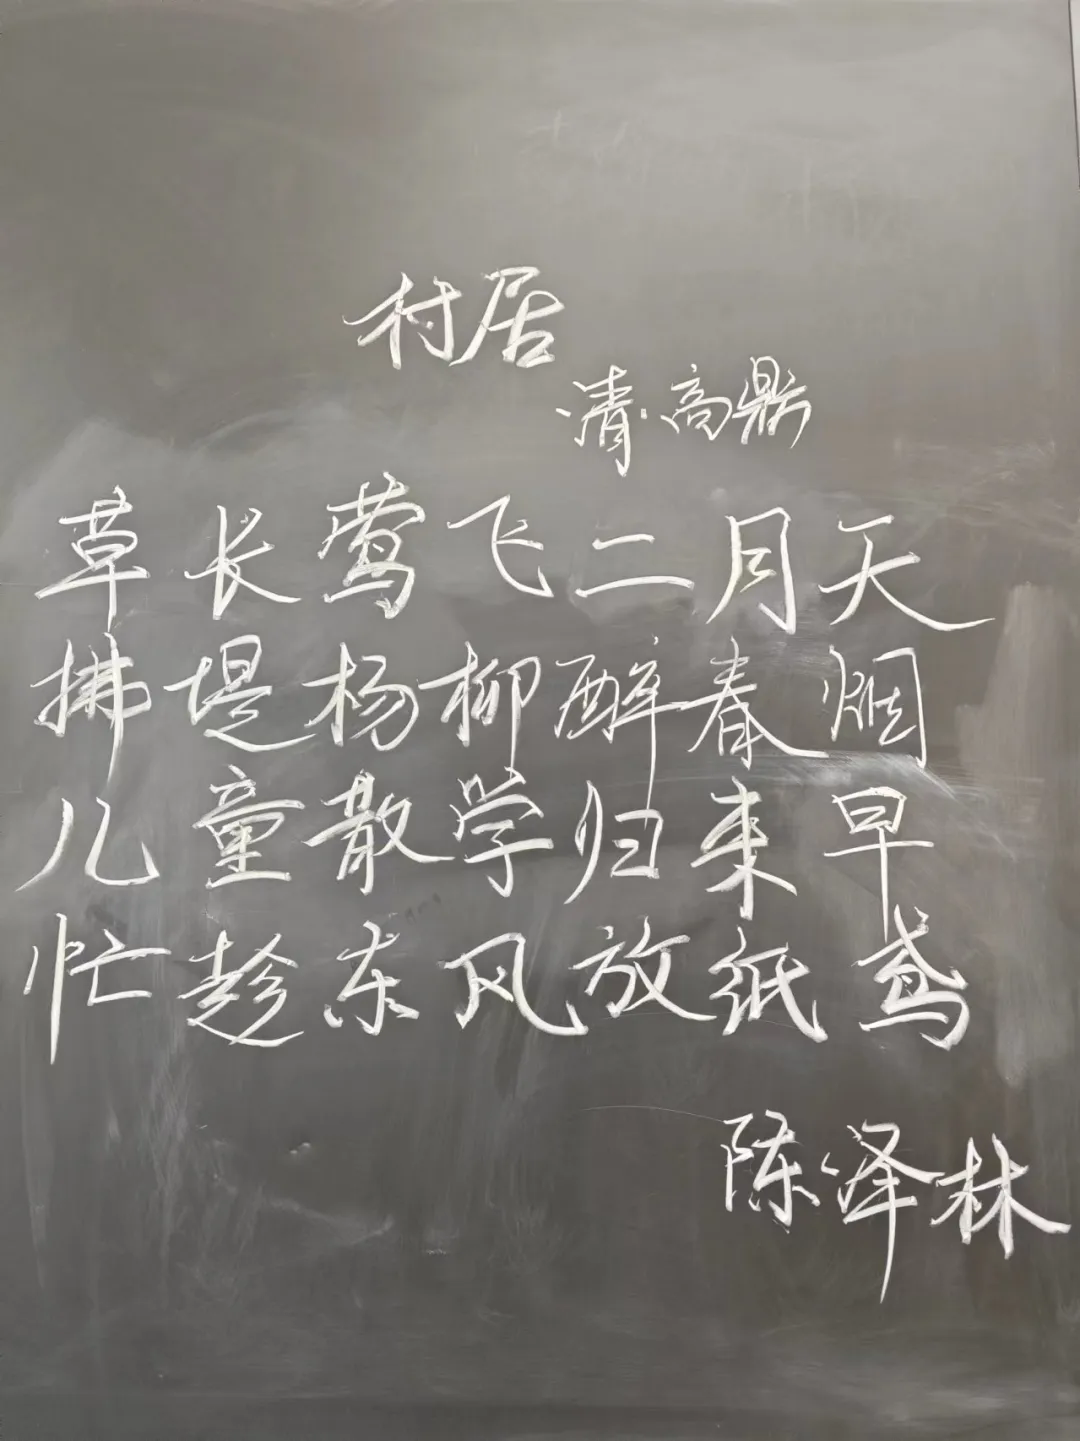 村居
清·高鼎
草长莺飞二月天
拂堤杨柳醉春烟
儿童散学归来早
忙趁东风放纸鸢
陈泽林